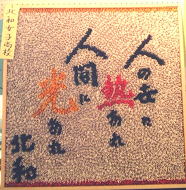 人の世に
熱あれ
人間に
光あれ
北和
北和女子高校